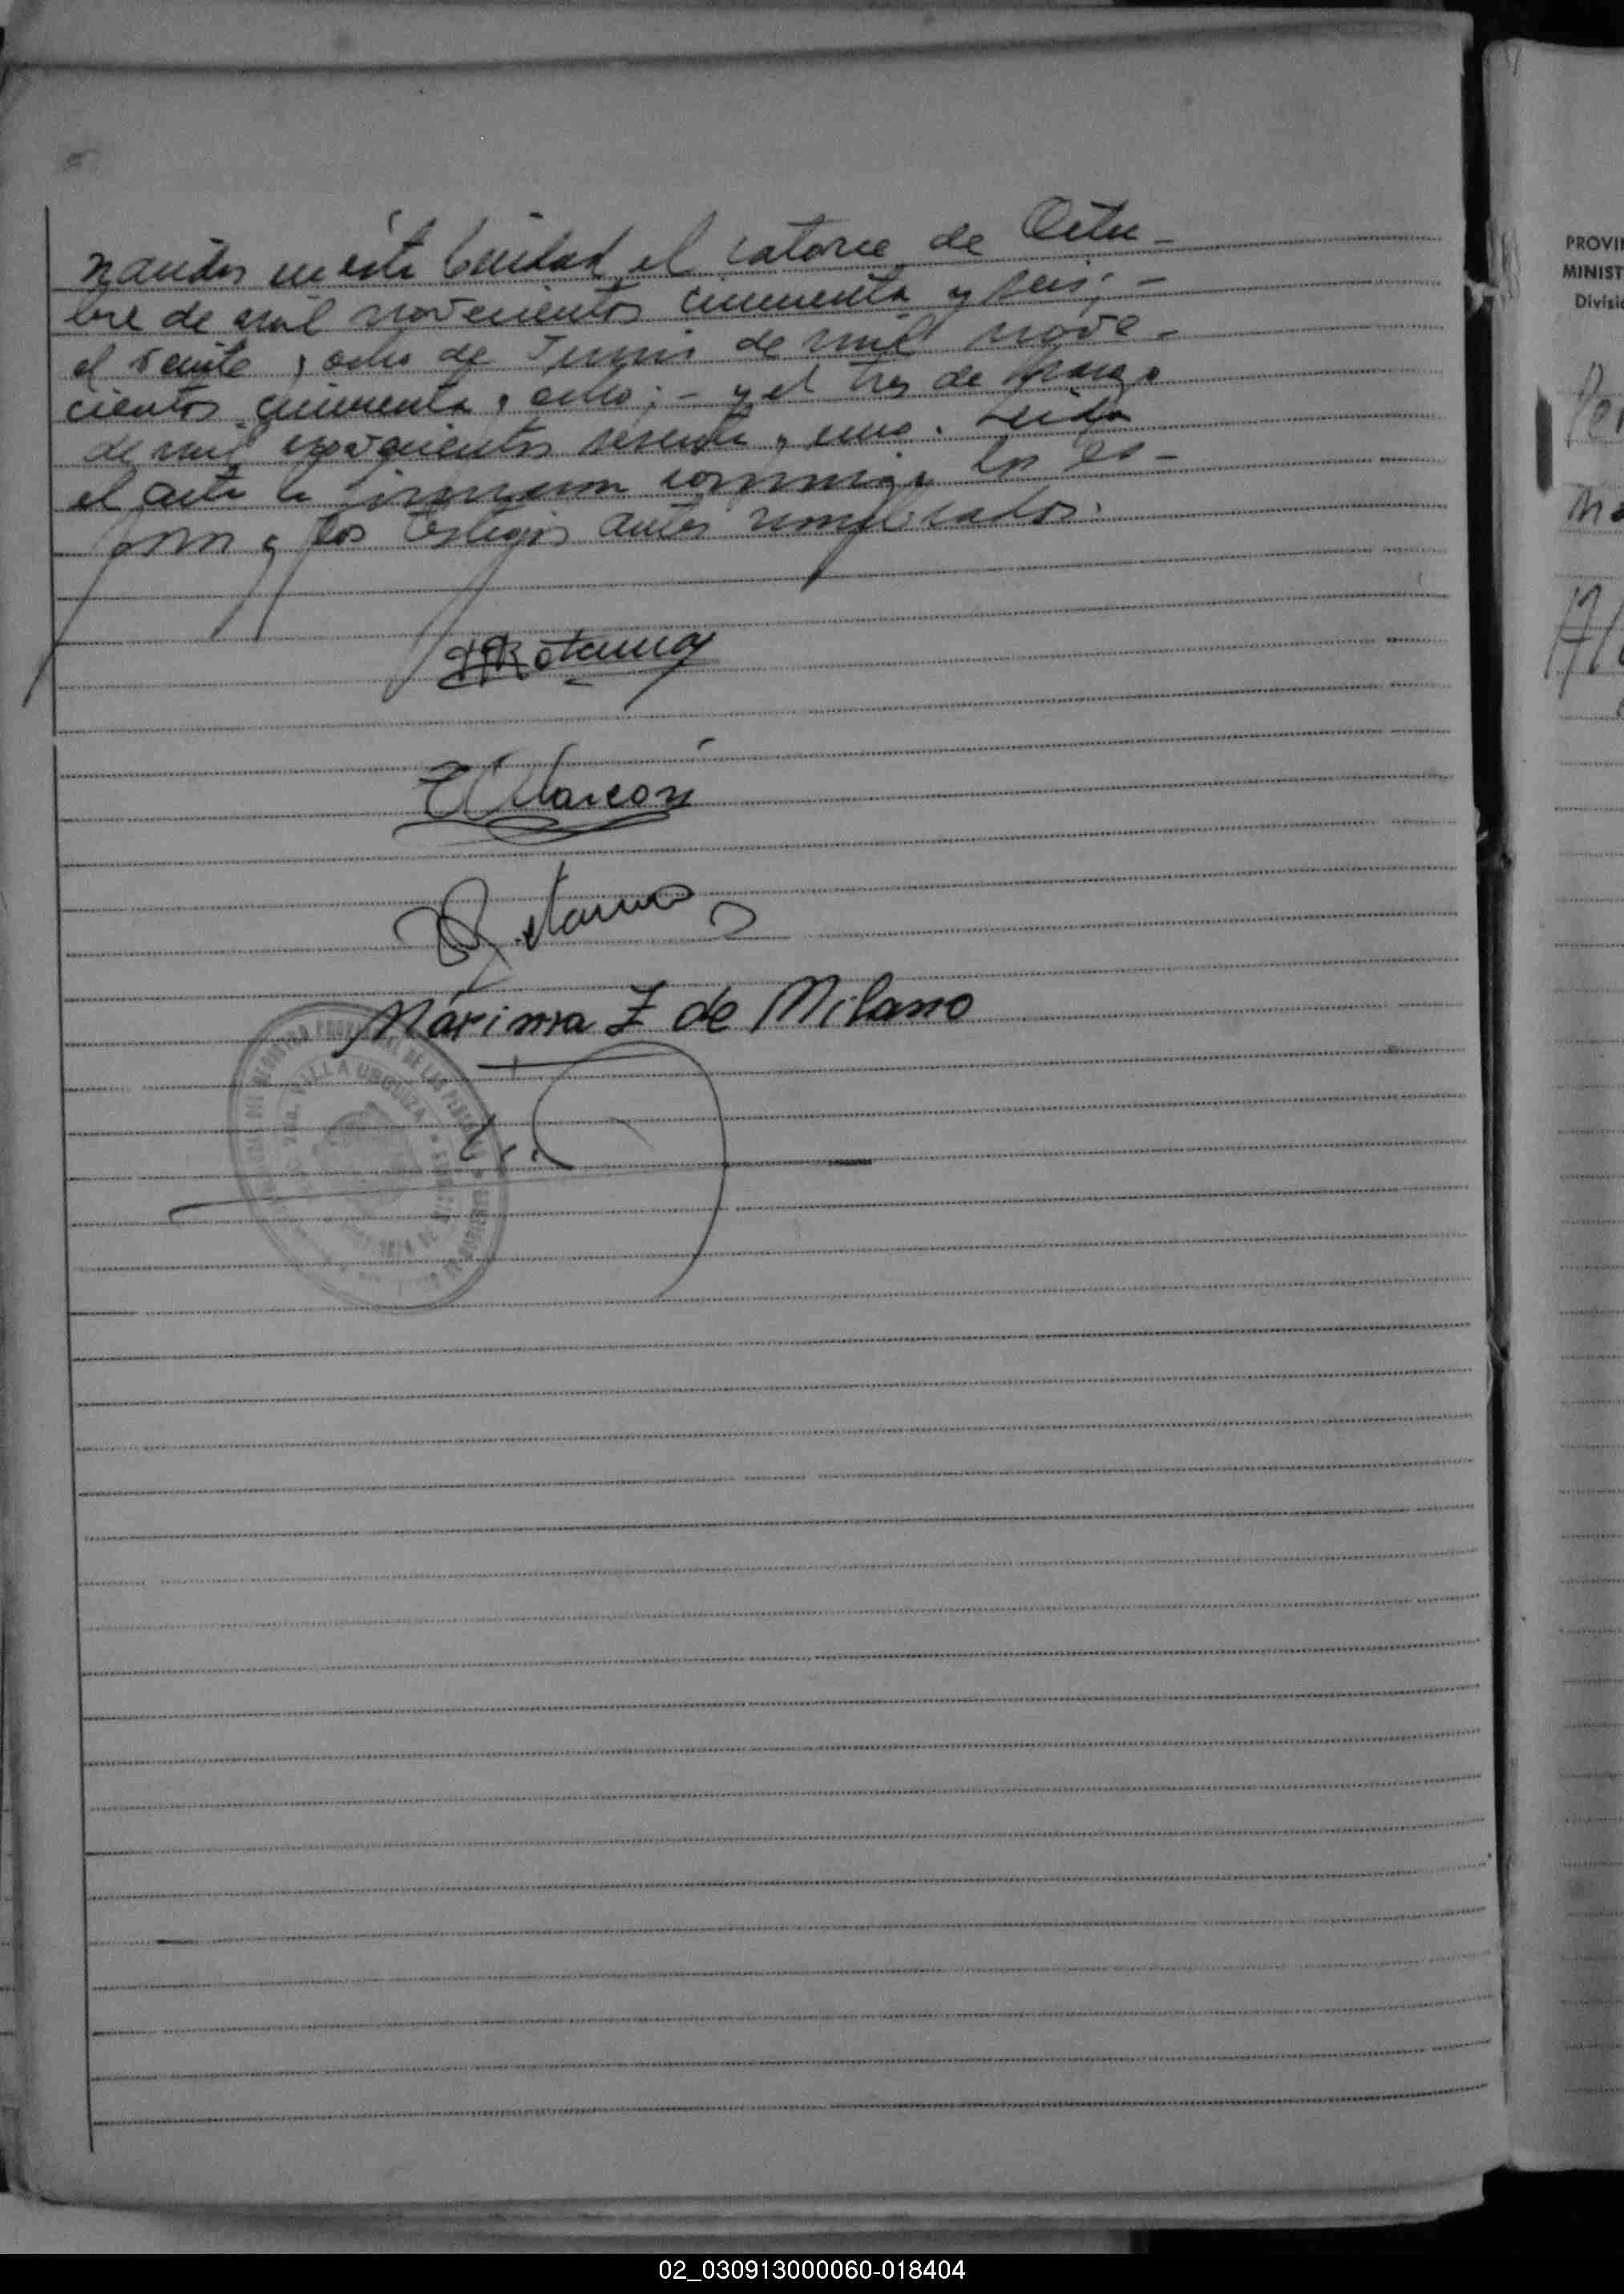 nacidos en ésta Ciudad el catorce de Octu-
bre de mil novecientos cincuenta y seis; -
el veinte y ocho de Junio de mil nove-
cientos cincuenta y ocho; - y el tres de Marzo
de mil novecientos sesenta y uno. Leida
el acta la firmaron conmigo los es-
posos y los testigos antes nombrados.
Retamoy
Alarcón
Máxima Z de Milano
VILLA URQUIZA
PROVI
MINIST
Divisi
02_030913000060-018404